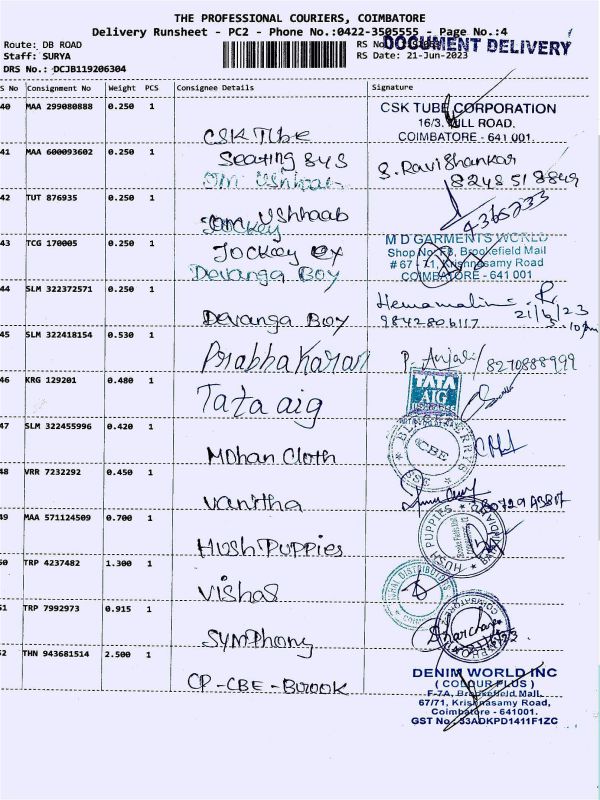 THE PROFESSIONAL COURIERS, COIMBATORE
Delivery Runsheet - PC2 - Phone No.:0422-3505555 - Page No.:4
Route: DB ROAD
RS No
DOCUMENT DELIVERY
Staff: SURYA
RS Date: 21-Jun-2023
DRS No.: DCJB119206304
S No Consignment No Weight PCS Consignee Details Signature
40 MAA 299080888 0.250 1
CSK Tube
CSK TUBE CORPORATION
16/3. MILL ROAD.
COIMBATORE - 641 001.
41 MAA 600093602 0.250 1
Seating sys
S. Ravi Shankar
8248518849
42 TUT 876935 0.250 1
Ushhaab
4365233
Jockey
43 TCG 170005 0.250 1
Jockey ex
Devanga Boy
M D GARMENTS WORLD
Shop No F8, Brookefield Mall
# 67 - 71, Krishnasamy Road
COIMBATORE - 641 001
44 SLM 322372571 0.250 1
Devanga Boy
Hemamalini. R
9842806117
21/6/23
45 SLM 322418154 0.530 1
Prabhakaran
P. Anjali / 8270888999
46 KRG 129201 0.480 1
Tata aig
TATA
AIG
INSURANCE
47 SLM 322455996 0.420 1
Mohan Cloth
CBE
48 VRR 7232292 0.450 1
Vanitha
49 MAA 571124509 0.700 1
Hush Puppies
HUSH PUPPIES
50 TRP 4237482 1.300 1
Vishal
DISTRIBUTORS
51 TRP 7992973 0.915 1
Symphony
52 THN 943681514 2.500 1
CP-CBE-Brook
DENIM WORLD INC
( COLOUR PLUS )
F-7A, Brookefield Mall,
67/71, Krishnasamy Road,
Coimbatore - 641001.
GST No : 33ADKPD1411F1ZC